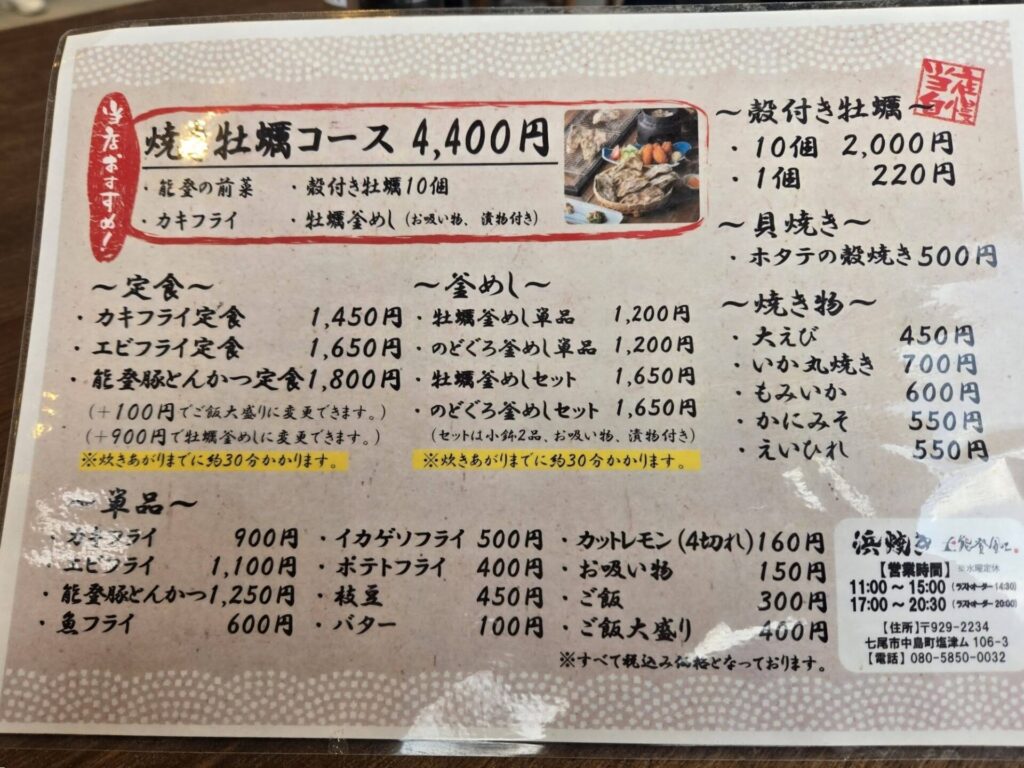 当店おすすめ!
焼き牡蠣コース 4,400円
・能登の前菜 ・殻付き牡蠣10個
・カキフライ ・牡蠣釜めし(お吸い物、漬物付き)
～定食～
・カキフライ定食 1,450円
・エビフライ定食 1,650円
・能登豚とんかつ定食 1,800円
(+100円でご飯大盛りに変更できます。)
(+900円で牡蠣釜めしに変更できます。)
※炊きあがりまでに約30分かかります。
～釜めし～
・牡蠣釜めし単品 1,200円
・のどぐろ釜めし単品 1,200円
・牡蠣釜めしセット 1,650円
・のどぐろ釜めしセット 1,650円
(セットは小鉢2品、お吸い物、漬物付き)
※炊きあがりまでに約30分かかります。
当店自慢
～殻付き牡蠣～
・10個 2,000円
・1個 220円
～貝焼き～
・ホタテの殻焼き 500円
～焼き物～
・大えび 450円
・いか丸焼き 700円
・もみいか 600円
・かにみそ 550円
・えいひれ 550円
～単品～
・カキフライ 900円
・エビフライ 1,100円
・能登豚とんかつ 1,250円
・魚フライ 600円
・イカゲソフライ 500円
・ポテトフライ 400円
・枝豆 450円
・バター 100円
・カットレモン(4切れ) 160円
・お吸い物 150円
・ご飯 300円
・ご飯大盛り 400円
※すべて税込み価格となっております。
浜焼き 能登
【営業時間】 ※水曜定休
11:00～15:00 (ラストオーダー14:30)
17:00～20:30 (ラストオーダー20:00)
【住所】〒929-2234
七尾市中島町塩津ム 106-3
【電話】080-5850-0032